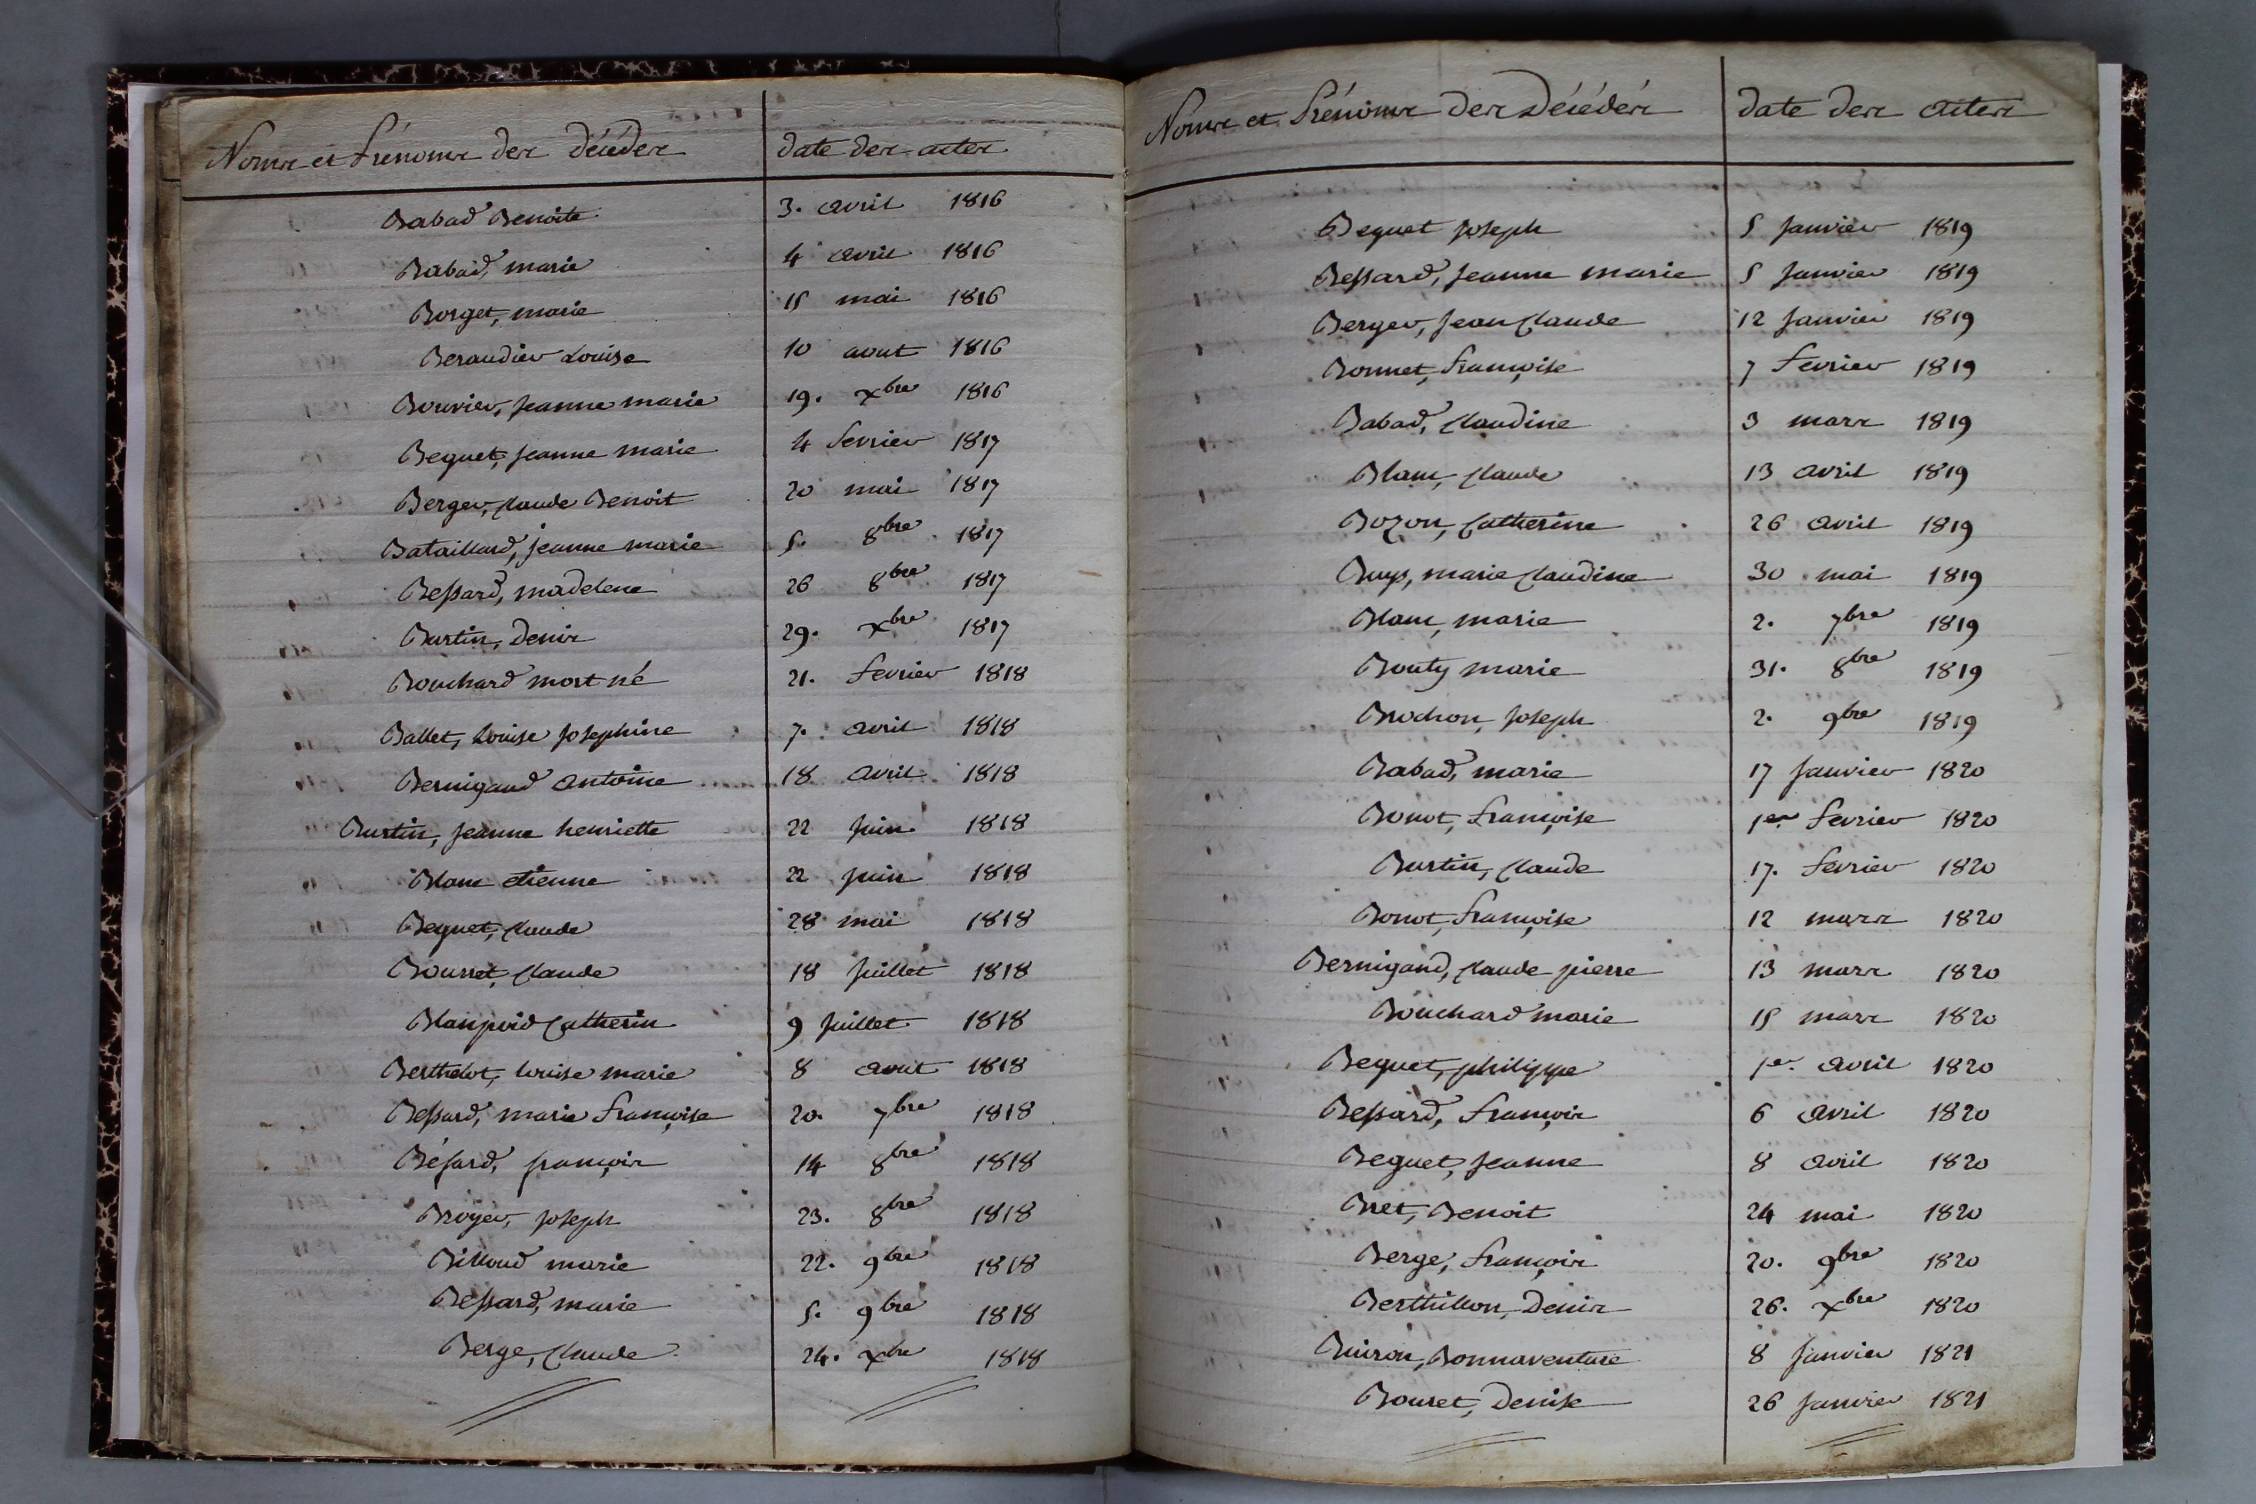 Noms et Prénoms des décédés date des actes
Babad Benoite 3. avril 1816
Babad, marie 4 avril 1816
Borget, marie 15 mai 1816
Beraudier Louise 10 aout 1816
Bouvier, Jeanne marie 19. xbre 1816
Beguet, Jeanne marie 4 fevrier 1817
Berger, Claude Benoit 20 mai 1817
Bataillard, jeanne marie 5. 8bre 1817
Bessard, madelene 26 8bre 1817
Burtin, Denis 29. xbre 1817
Bouchard mort né 21. fevrier 1818
Ballet, Louise Josephine 7. avril 1818
Bernigaud antoine 18 avril 1818
Burtin, Jeanne henriette 22 Juin 1818
Blanc etienne 22 Juin 1818
Beguet, Claude 28 mai 1818
Bourret, Claude 18 Juillet 1818
Blanpoid Catherin 9 Juillet 1818
Berthelot, louise marie 8 aout 1818
Bessard, marie francoise 20. 7bre 1818
Bésard, françois 14 8bre 1818
Broyer, Joseph 23. 8bre 1818
Billoud marie 22. 9bre 1818
Bessard, marie 5. 9bre 1818
Berge, Claude 24. xbre 1818
Noms et Prénoms des Décédés date des actes
Beguet Joseph 5 Janvier 1819
Bessard, Jeanne marie 5 Janvier 1819
Berger, Jean Claude 12 Janvier 1819
Bonnet, françoise 7 Fevrier 1819
Babad, Claudine 3 mars 1819
Blanc, Claude 13 avril 1819
Bozon, Catherine 26 avril 1819
Buys, marie Claudine 30 mai 1819
Blanc, marie 2. 7bre 1819
Bouty marie 31. 8bre 1819
Brochon, Joseph 2. 9bre 1819
Babad, marie 17 Janvier 1820
Bonot, françoise 1er fevrier 1820
Burtin, Claude 17. fevrier 1820
Bonot, françoise 12 mars 1820
Bernigaud, Claude pierre 13 mars 1820
Bouchard marie 15 mars 1820
Beguet, philippe 1er. avril 1820
Bessard, françois 6 avril 1820
Beguet, Jeanne 8 avril 1820
Bret, Benoit 24 mai 1820
Berge, françois 20. 9bre 1820
Berthillon, Denis 26. xbre 1820
Buiron, Bonnaventure 8 Janvier 1821
Bouret, Denise 26 Janvier 1821